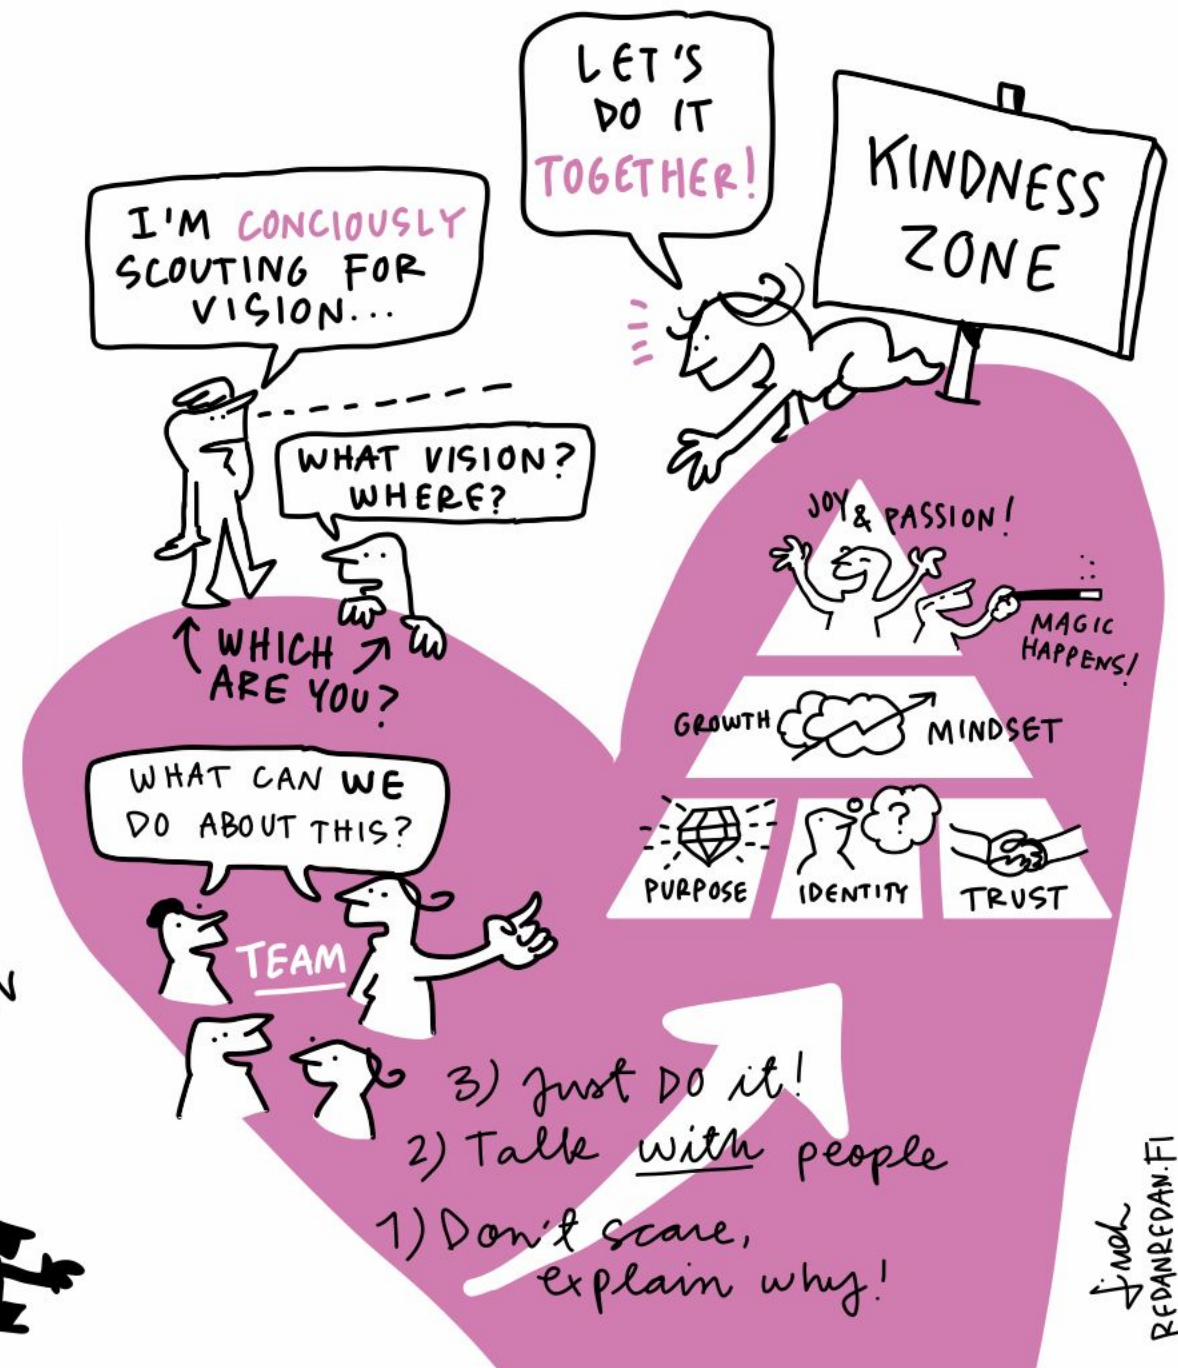 LET'S
DO IT
TOGETHER!
KINDNESS
ZONE
I'M CONCIOUSLY
SCOUTING FOR
VISION...
WHAT VISION?
WHERE?
WHICH
ARE YOU?
JOY & PASSION!
MAGIC
HAPPENS!
GROWTH MINDSET
?
PURPOSE IDENTITY TRUST
WHAT CAN WE
DO ABOUT THIS?
TEAM
3) Just DO it!
2) Talk with people
1) Don't scare,
explain why!
REDANREDAN.FI